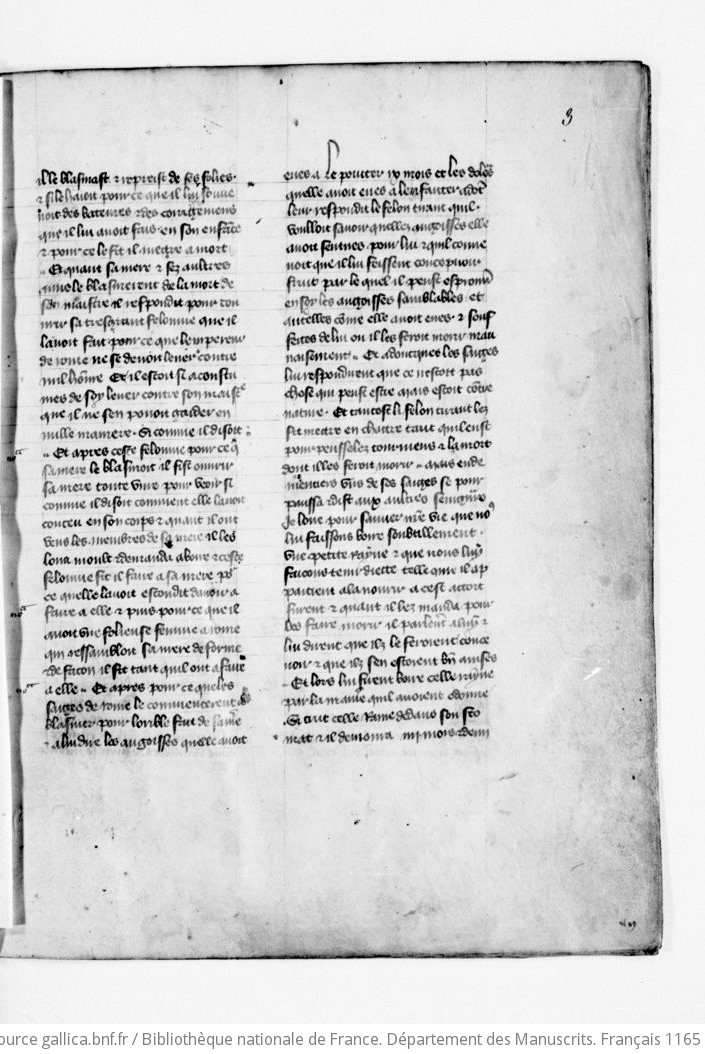 3
ille blasmast ⁊ repreist de ses folies.
⁊ si le hauoit pour ce que il lui souue
noit des bateures ⁊ des corrigemens
que il lui auoit fais en son enfāce
⁊ pour ce le fit il mectre a mort
Et quant sa mere ⁊ sez aultres
amis le blasmerent de la mort de
son maistre il respondit pour cou
urir sa tresgrant felonnie que il
lauoit fait pour ce que lempereur
de rome ne se deuoit leuer contre
nul hōme Et il estoit si acoustu
mes de soy leuer contre son maistͤ
que il ne sen pouoit garder en
nulle maniere. Si comme il disoit
Et apres ceste felonnie pour ce q̄
sa mere le blasmoit il fist ouurir
sa mere toute viue pour veoir si
comme il disoit comment elle lauoit
conceu en son corps ⁊ quant il ont
veus les membres de sa mere il les
loua moult ⁊ demanda a boire ⁊ ceste
felonnie fit il faire a sa mere po᷑
ce quelle lauoit escondit dauoir a
faire a elle ⁊ puis pour ce que il
auoit vne folieuse femme a rome
qui ressambloit sa mere de forme
⁊ de facon il fit tant quil ont a faire
a elle Et apres pour ce que les
saiges de rome le commencerent a
blasmer pour lorible fait de sa me
a lui dire les angoisses quelle auoit
eues a le pourter ix mois et les dolo᷑s
quelle auoit eues a lenfanter adōt
leur respondit le felon tirant quil
voulloit sauoir quelles angoisses elle
auoit sentues pour lui ⁊ quil conue
noit que il lui feissent conceuoir
fruit par le quel il peust esprouu᷑
en soy les angoisses samblables et
autelles cōme elle auoit eues ⁊ souf
fertes de lui ou il les feroit morir mau
uaisement. Et adoncques les saiges
lui respondirent que ce nestoit pas
chose qui peust estre mais estoit cōtre
nature. Et tantost li felon tirant lez
fit mectre en chartre tant quil eust
pour pensselez tourmens ⁊ la mort
dont il les feroit morir mais ende
mentiers vns de ses saiges se pour
penssa ⁊ dist aux aultres seingneurs
Je loue pour sauuer nr̄e vie que nꝰ
lui faissons boire soubtillement
vne petite rayne ⁊ que nous lui
facons tenir diette telle que il ap
partient a la nourir a cest acort
furent ⁊ quant il lez manda pour
les faire morir il parlerēt a lui ⁊
lui dirent que ilz le feroient conce
uoir ⁊ que ilz sen estoient biē auises
Et lors lui firent boire celle rayne
par la maniē quil auoient ordonne
Si crut celle Rayne dedans son sto
mac ⁊ il demoura iii mois ⁊ demi
source gallica.bnf.fr / Bibliothèque nationale de France. Département des Manuscrits. Français 1165